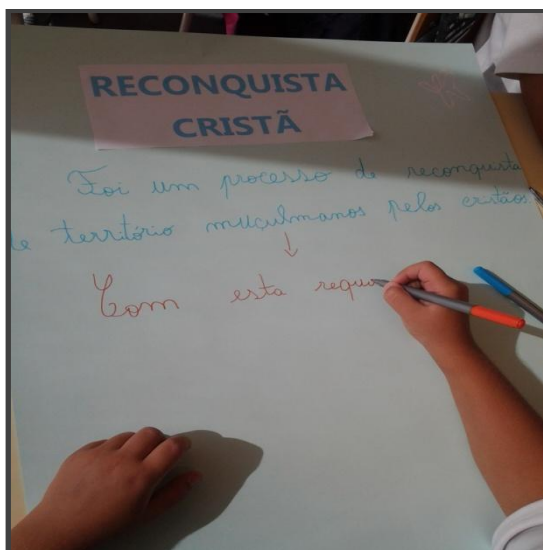 RECONQUISTA
CRISTÃ
Foi um processo de reconquista
de território muçulmanos pelos cristãos.
Com esta requi